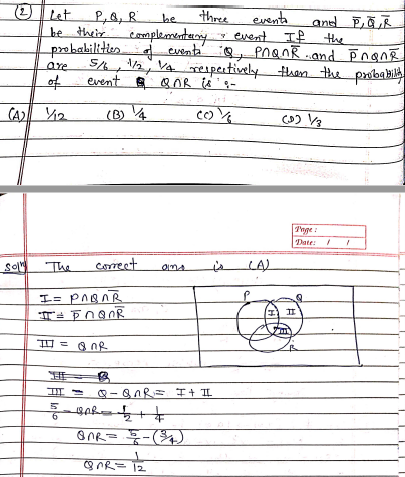 ② Let P, Q, R be three events and P̅, Q̅, R̅
be their complementary event If the
probabilities of events Q, P∩Q∩R̅ and P̅∩Q∩R̅
are 5/6, 1/2, 1/4 respectively then the probability
of event Q∩R is :-
(A) 1/12 (B) 1/4 (C) 1/6 (D) 1/3
Page :
Date: / /
Solⁿ The correct ans is (A)
I = P∩Q∩R̅
II = P̅∩Q∩R̅
III = Q∩R
P Q
I II
III
R
III = Q-Q∩R = I + II
5/6 - Q∩R = 1/2 + 1/4
Q∩R = 5/6 - (3/4)
Q∩R = 1/12